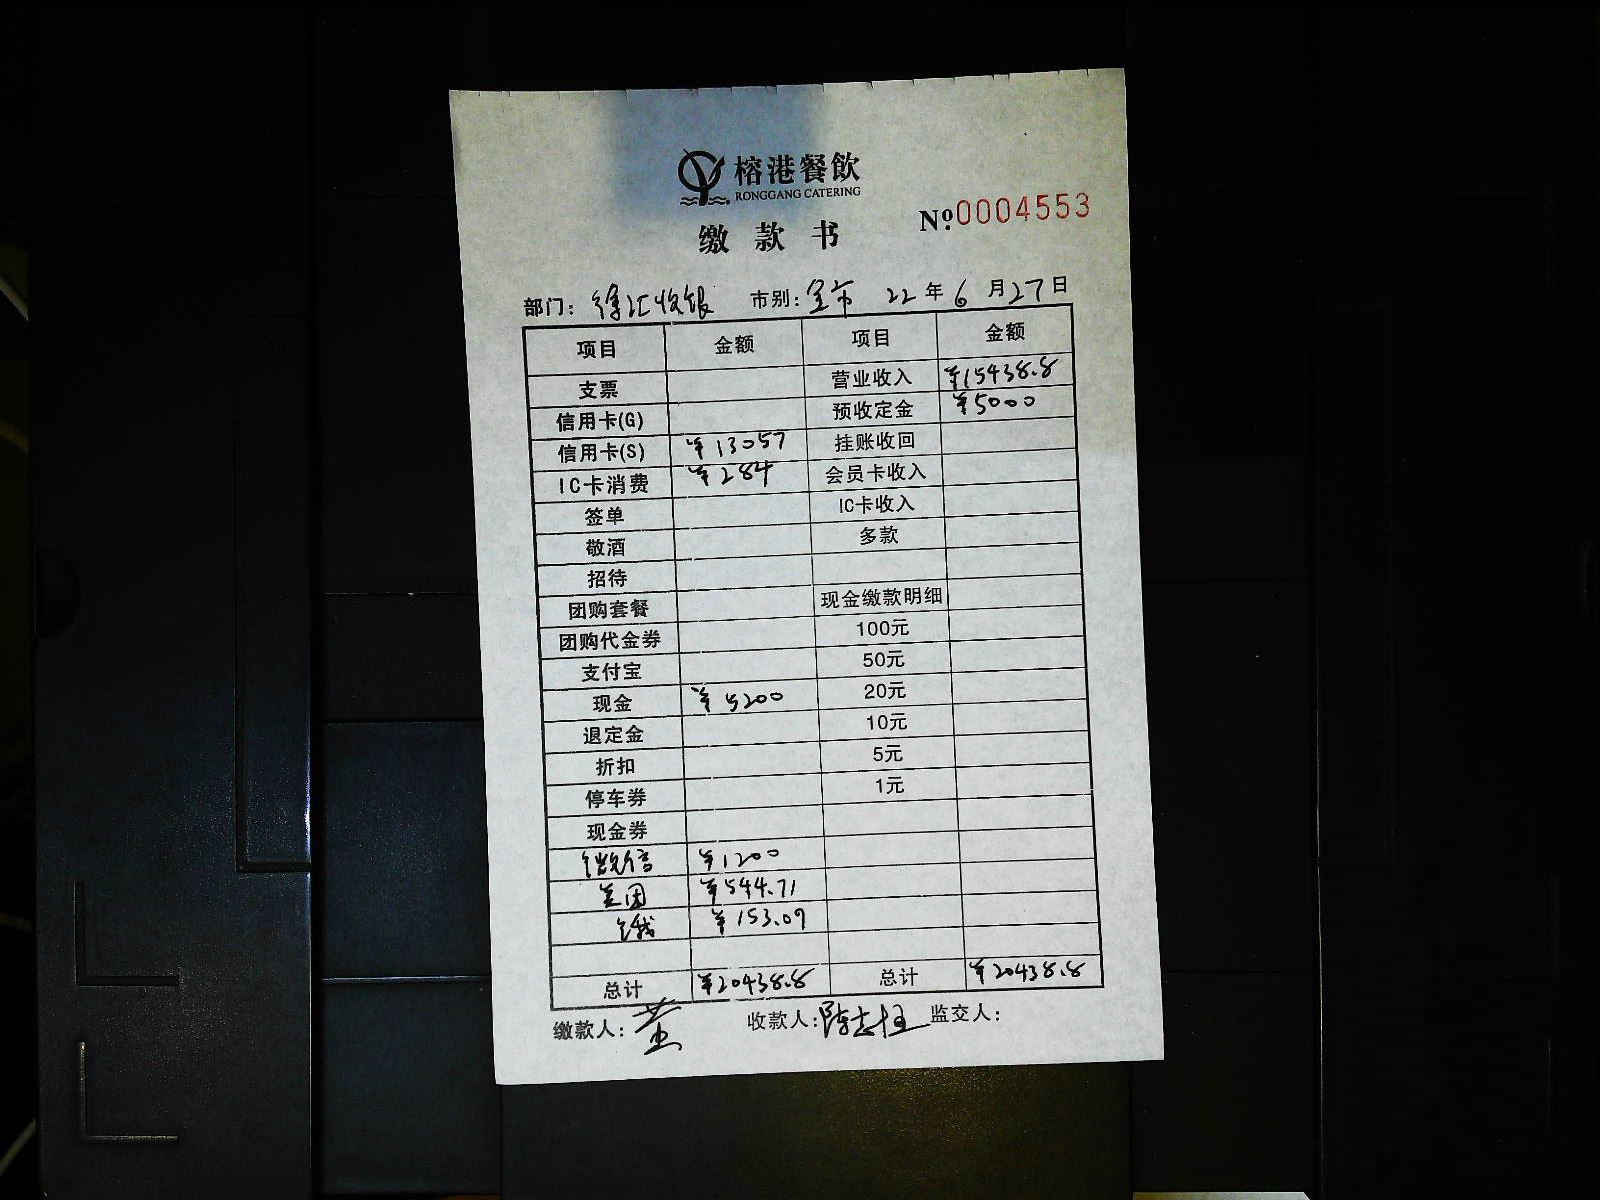 榕港餐飲
RONGGANG CATERING
缴款书
№ 0004553
部门: 徐汇收银 市别: 全市 22年6月27日
项目 金额 项目 金额
支票 营业收入 ¥15438.8
信用卡(G) 预收定金 ¥5000
信用卡(S) ¥13057 挂账收回
IC卡消费 ¥284 会员卡收入
签单 IC卡收入
敬酒 多款
招待
团购套餐 现金缴款明细
团购代金券 100元
支付宝 50元
现金 ¥5200 20元
退定金 10元
折扣 5元
停车券 1元
现金券
¥1200
美团 ¥544.71
饿 ¥153.09
总计 ¥20438.8 总计 ¥20438.8
缴款人: 收款人: 监交人: